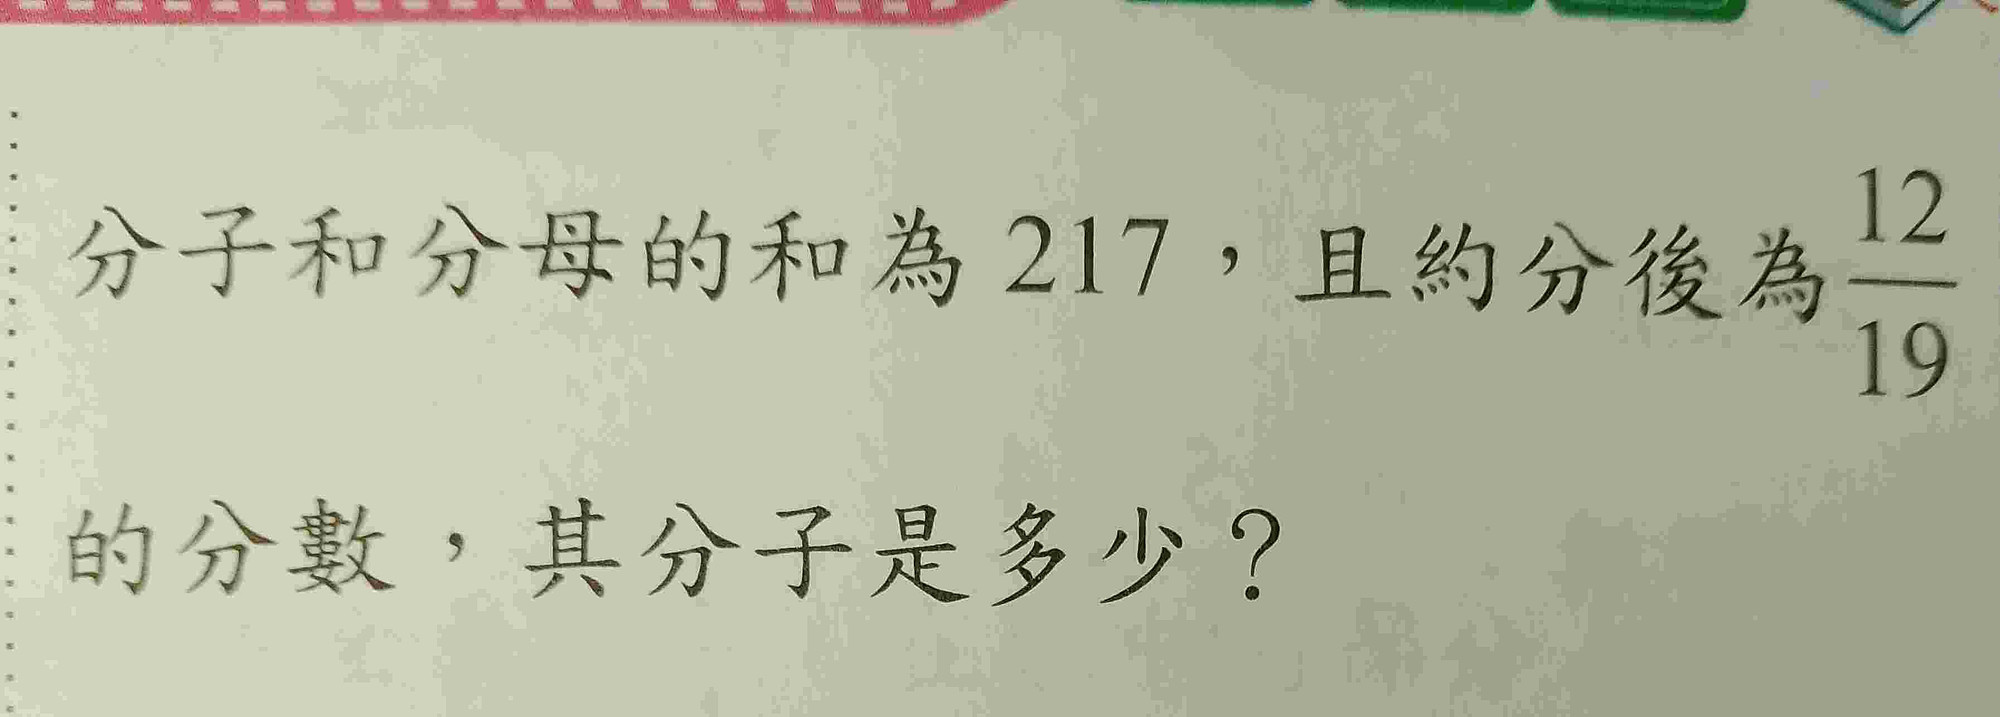 分子和分母的和為 217，且約分後為 12/19
的分數，其分子是多少？